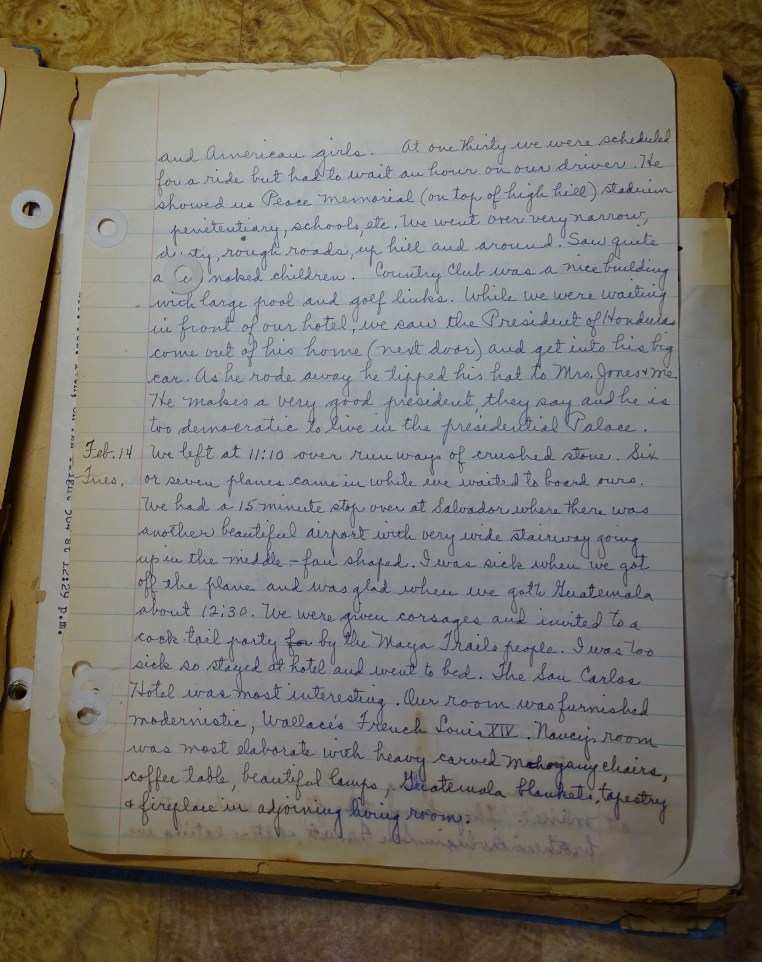 and American girls. At one thirty we were scheduled
for a ride but had to wait an hour on our driver. He
showed us Peace Memorial (on top of high hill) stadium
penitentiary, schools, etc. We went over very narrow,
dirty, rough roads, up hill and around. Saw quite
a naked children. Country Club was a nice building
with large pool and golf links. While we were waiting
in front of our hotel, we saw the President of Honduras
come out of his home (next door) and get into his big
car. As he rode away he tipped his hat to Mrs. Jones & me.
He makes a very good president, they say and he is
too democratic to live in the presidential Palace.
Feb. 14 We left at 11:10 over runways of crushed stone. Six
Tues. or seven planes came in while we waited to board ours.
We had a 15 minute stop over at Salvador where there was
another beautiful airport with very wide stairway going
up in the middle - fan shaped. I was sick when we got
off the plane and was glad when we got to Guatemala
about 12:30. We were given corsages and invited to a
cock-tail party for by the Maya Trails people. I was too
sick so stayed at hotel and went to bed. The San Carlos
Hotel was most interesting. Our room was furnished
modernistic, Wallace's French Louis XIV. Nancy's room
was most elaborate with heavy carved mahogany chairs,
coffee table, beautiful lamps, Guatemala blankets, tapestry
& fireplace in adjoining living room.
12:29 p.m.